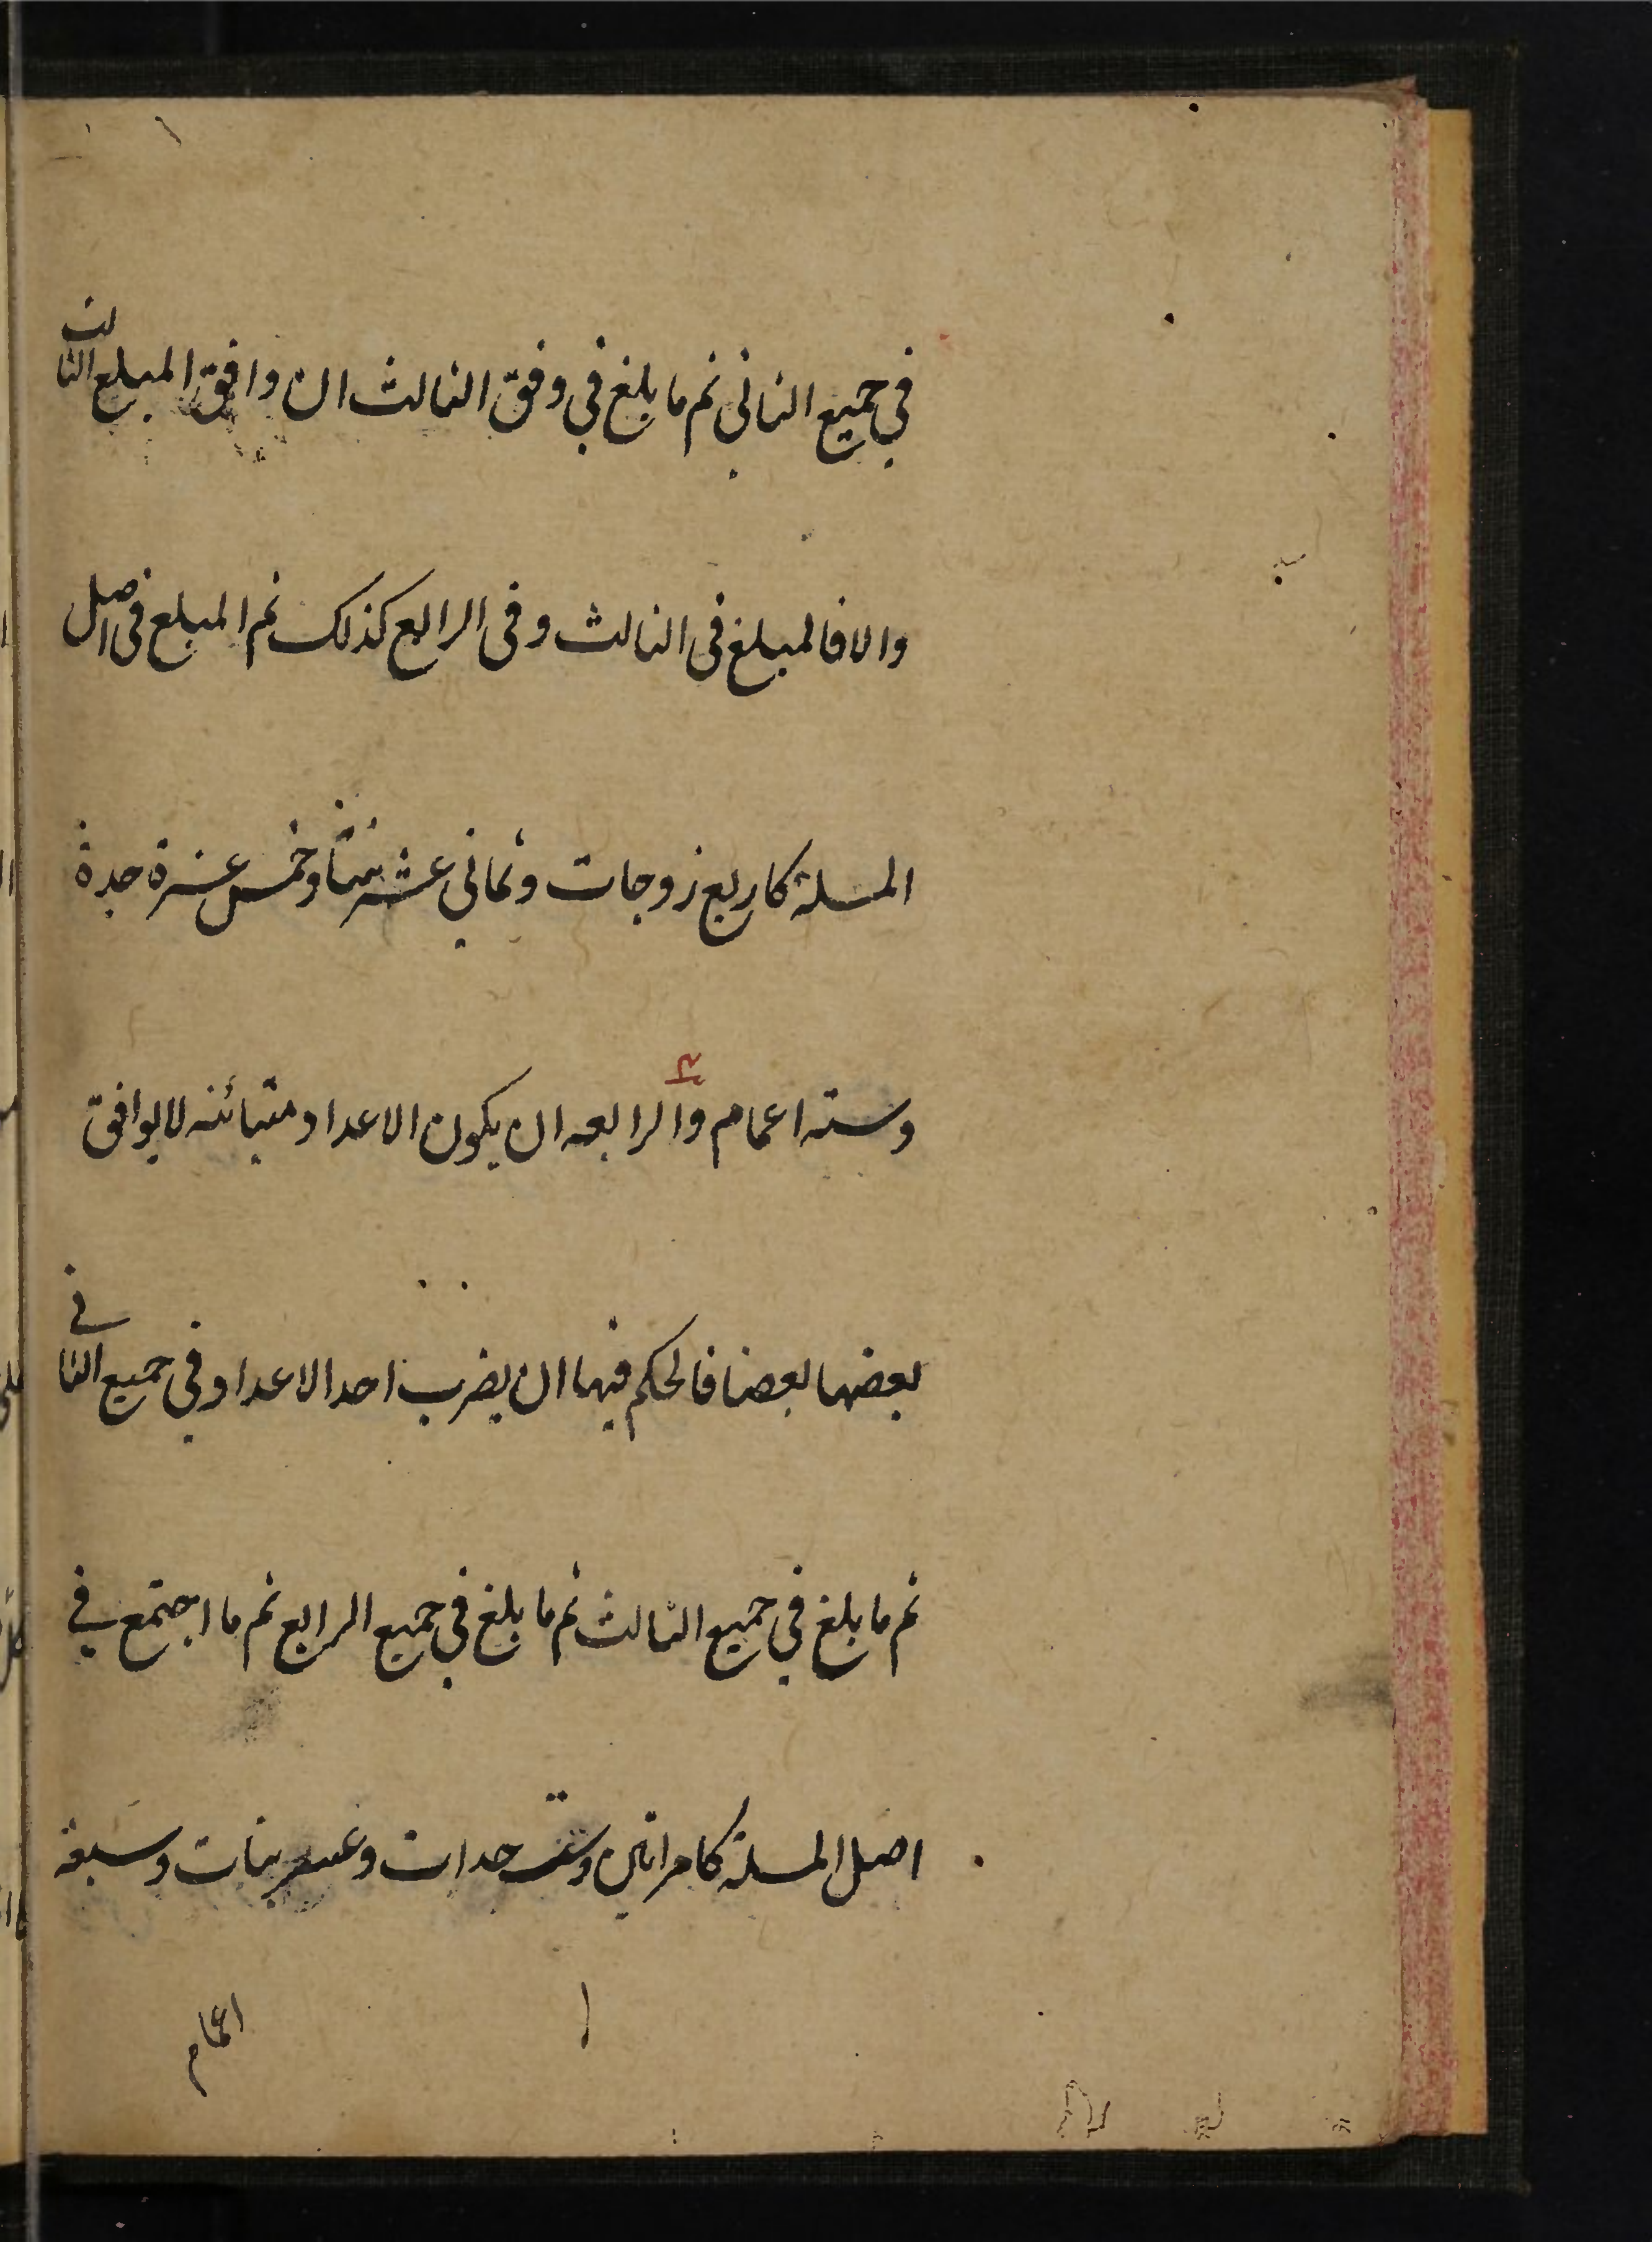 في جميع الثاني ثم ما بلغ في وفق الثالث ان وافق المبلغ الثالث
والا فالمبلغ في الثالث وفي الرابع كذلك ثم المبلغ في اصل
المسلة كاربع زوجات وثماني عشر بنتا وخمس عشرة جدة
وستة اعمام والرابعه ان يكون الاعداد متبائنه لا يوافق
بعضها بعضا فالحكم فيها ان يضرب احد الاعداد في جميع الثاني
ثم ما بلغ في جميع الثالث ثم ما بلغ في جميع الرابع ثم ما اجتمع في
اصل المسلة كامراتين وستة جدات وعشر بنات وسبعة
اعمام